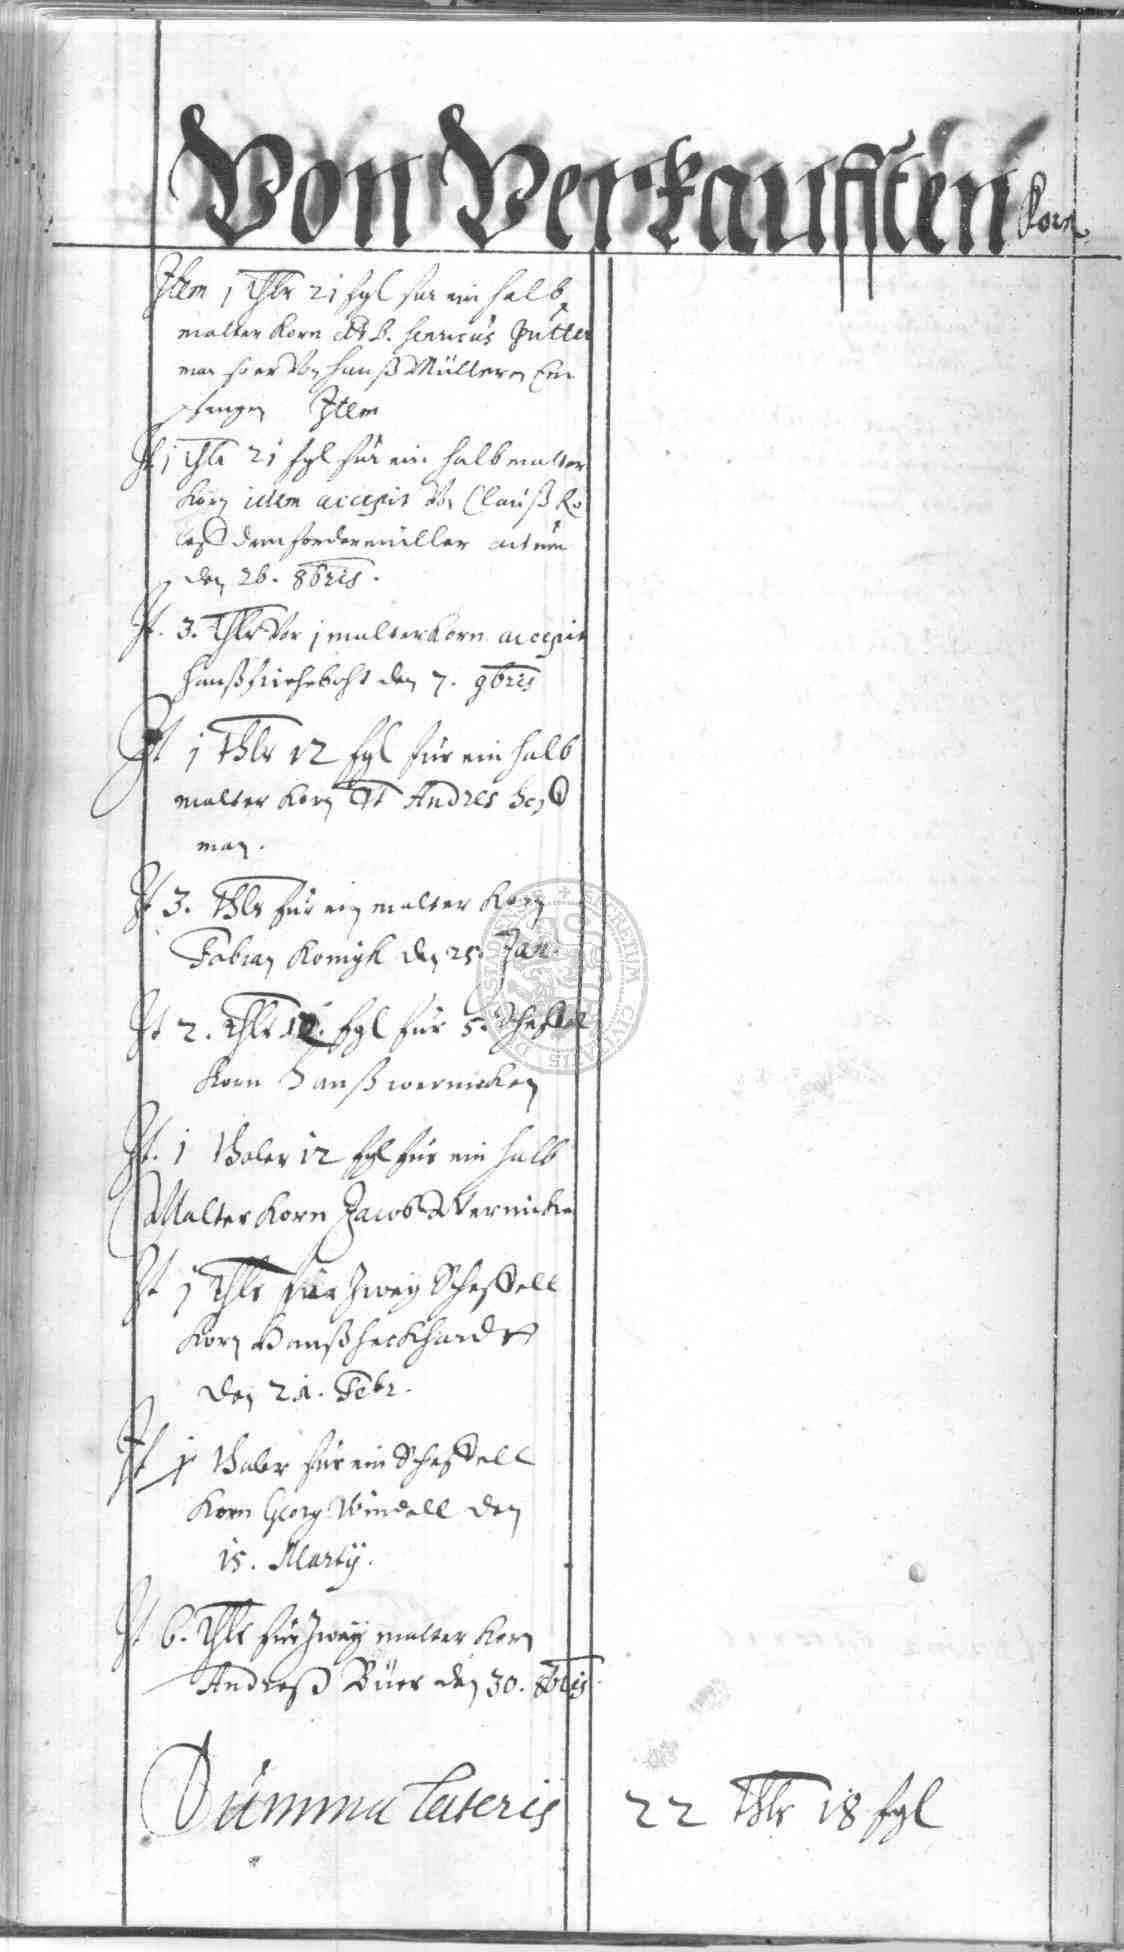 Von Verkaufften Korn
Item 1 Thlr 21 sgl für ein halb
malter Korn ddt H. Henricus Putter
man so er von Hanß Müllern Em
pfangen Item
It 1 Thlr 21 sgl für ein halb malter
Korn idem accepit von Clauß Ro
dem fordermüller actum
den 26. 8bris.
It. 3. Thlr vor 1 malter Korn accepit
Hanß den 7. 9bris
It 1 Thlr 12 sgl für ein halb
malter Korn Andres
man.
It 3. Thlr für ein malter Korn
Fabian den 25. Jan.
It 2. Thlr 12. sgl für 5. Scheffel
Korn Hanß wernicken
It. 1 thaler 12 sgl für ein halb
Malter Korn Jacob Wernicke
It 1 Thlr für Zwey Scheffell
Korn Hanß Heckhardt
den 21. Febr.
It thaler für ein Scheffell
Korn Georg Windell den
15. Martij.
It 6. Thlr für Zwey malter Korn
Andreß Büer den 30. 8bris.
Summa lateris 22 Thlr 18 sgl